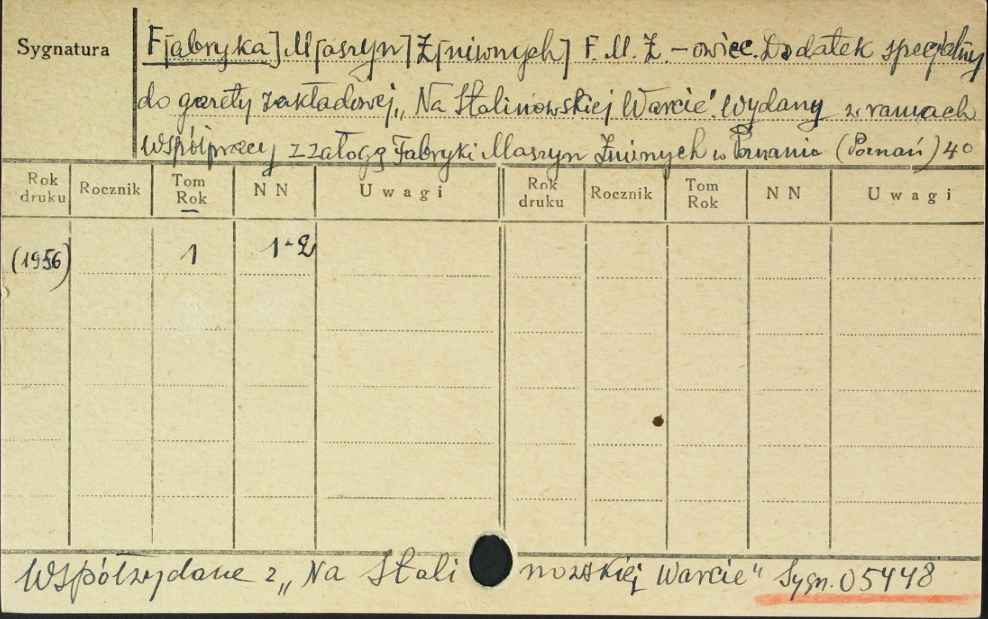 Sygnatura
F[abryka] M[aszyn] Ż[niwnych] F. M. Ż. - owiec. Dodatek specjalny
do gazety zakładowej „Na Stalinowskiej Warcie". Wydany w ramach
współpracy z załogą Fabryki Maszyn Żniwnych w Poznaniu (Poznań) 4°
Rok druku Rocznik Tom Rok N N Uwagi Rok druku Rocznik Tom Rok N N Uwagi
(1956) 1 1-2
Współwydane z „Na Stalinowskiej Warcie" Sygn. 05448